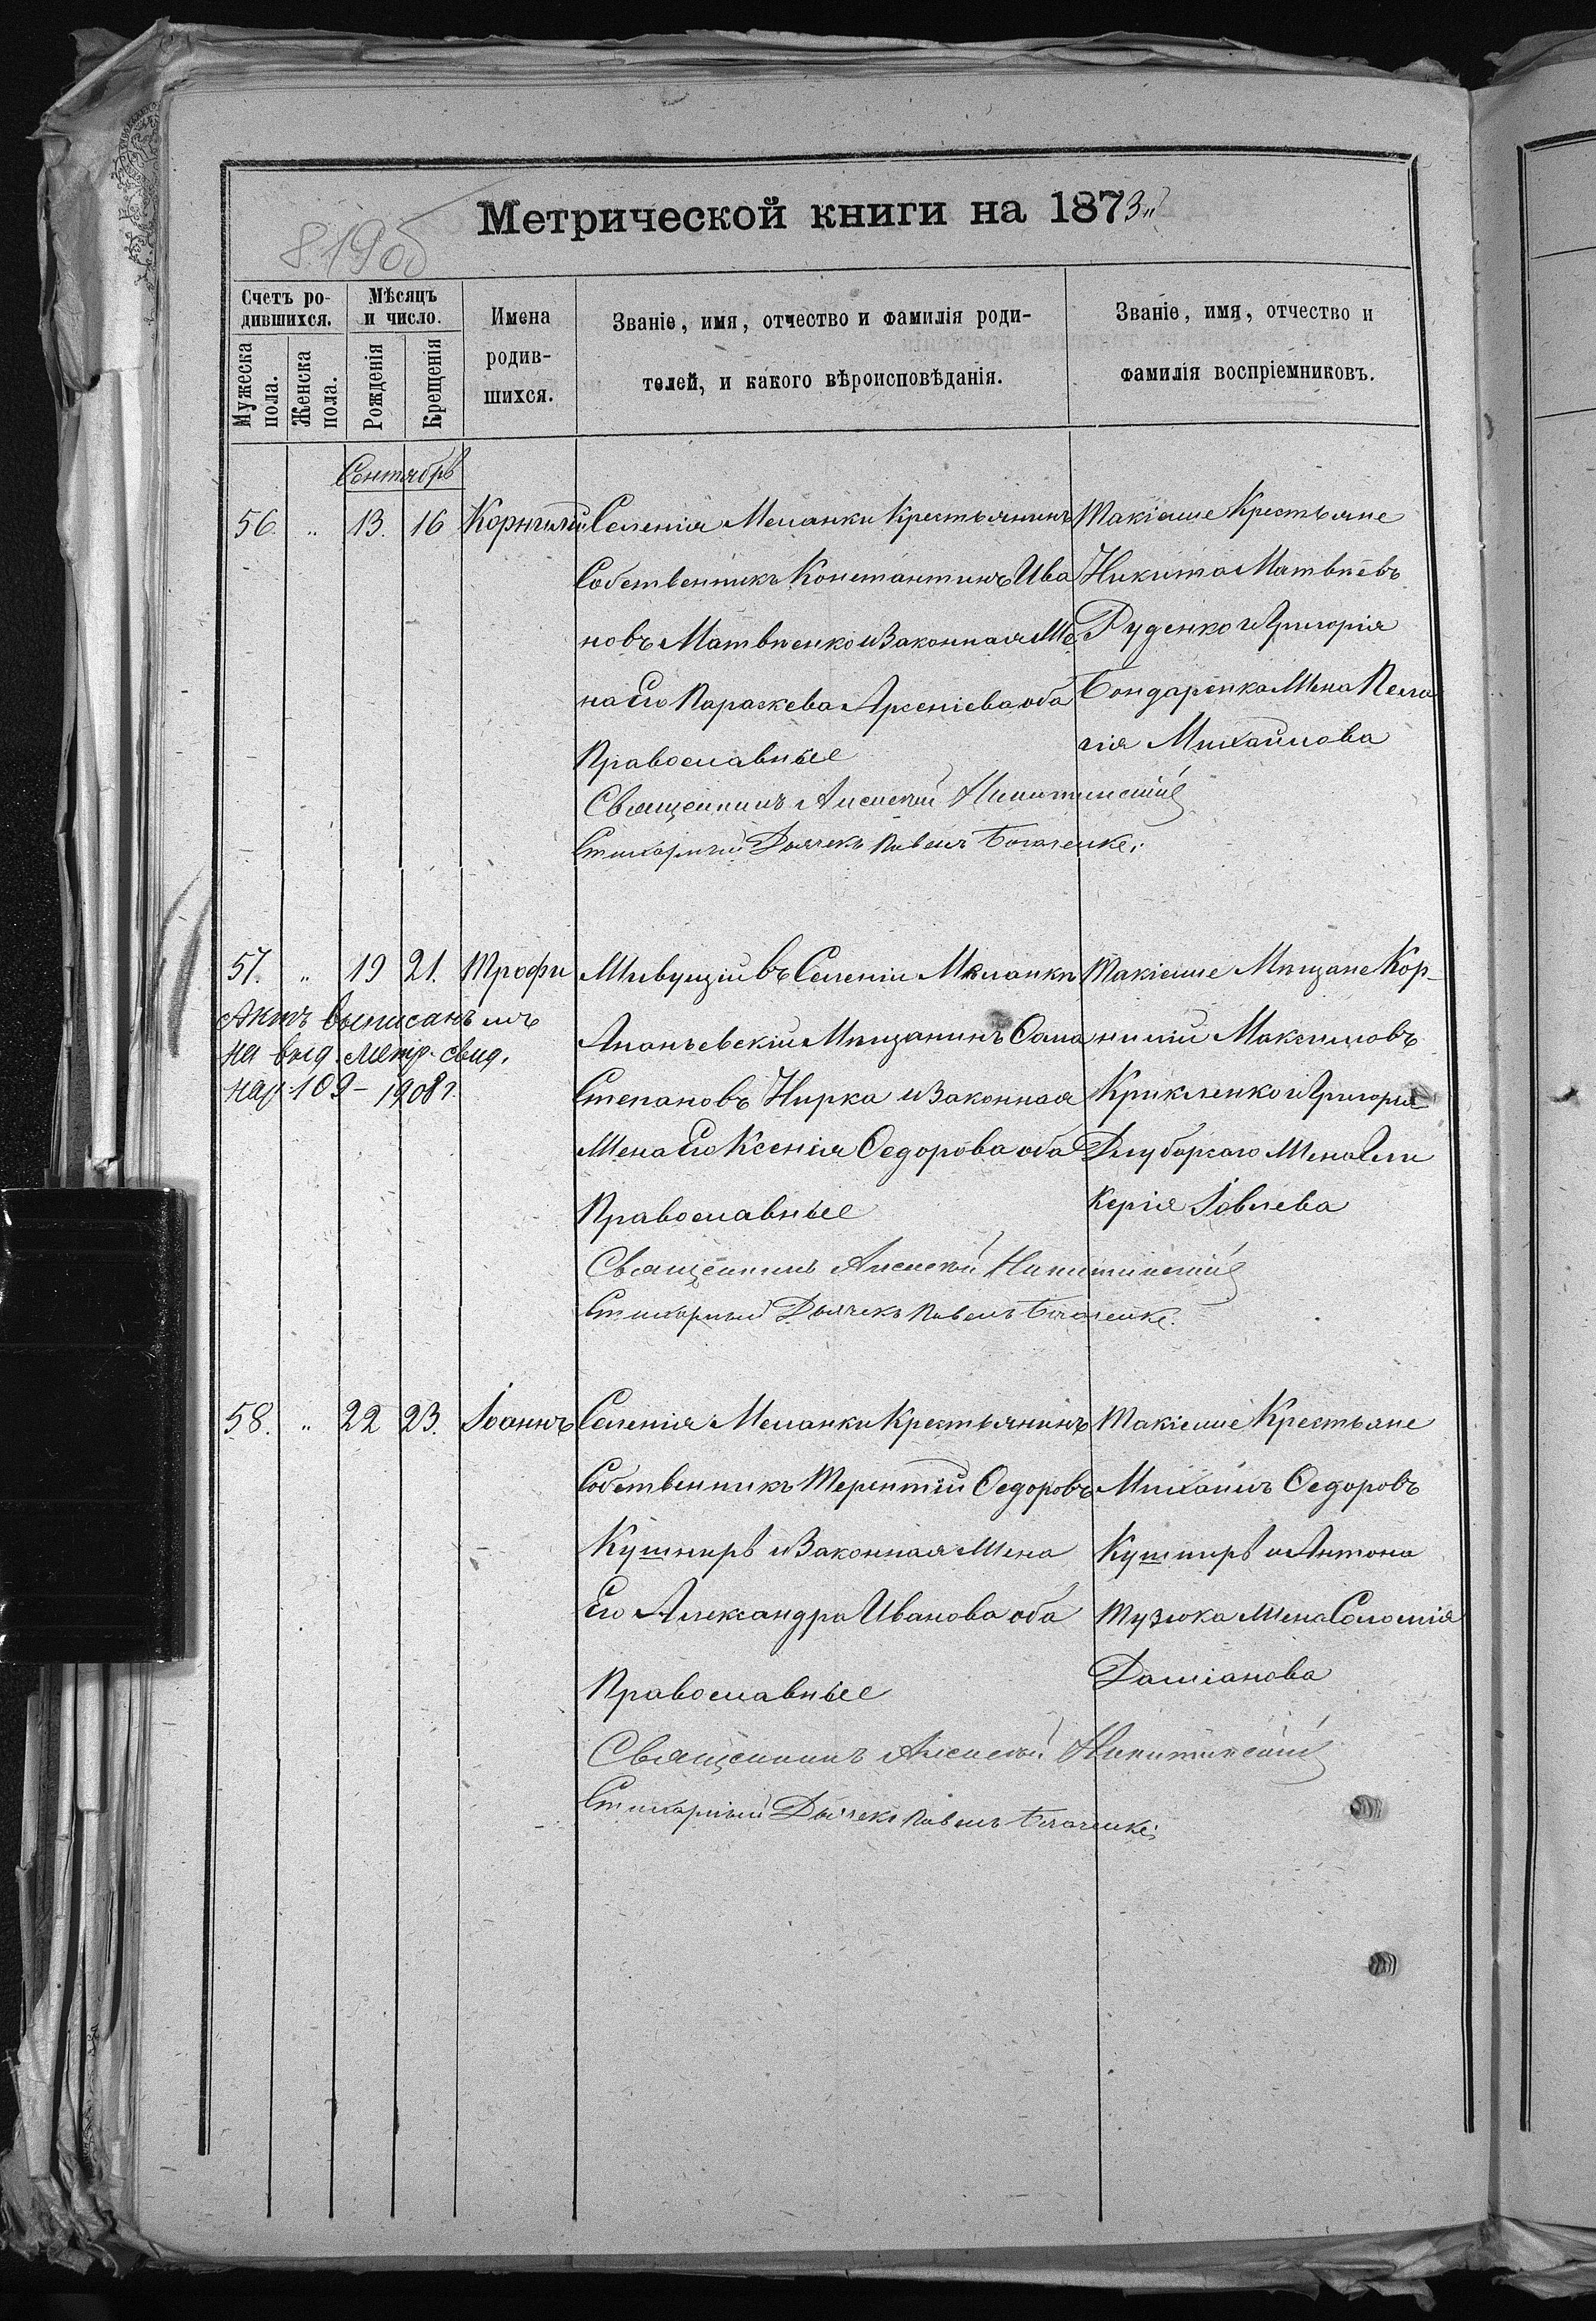 Метрической книги на 1873й
819об
Счетъ ро-
дившихся.
Мужеска пола.
Женска пола.
Мѣсяцъ
и число.
Рожденія
Крещенія
Имена
родив-
шихся.
Званіе, имя, отчество и фамилія роди-
телей, и какого вѣроисповѣданія.
Званіе, имя, отчество и
фамилія воспріемниковъ.
Сентябрь
56. " 13. 16 Корнилій
Селенія Меланки Крестьянинъ
Собственникъ Константинъ Ива
новъ Матвѣенко и Законная Же
на Его Параскева Арсеніева оба
Православные
Такіеже Крестьяне
Никита Матвѣевъ
Руденко и Григорія
Бондаренка Жена Пела
гія Михайлова
Священникъ Алексѣй Никитинскій
Стихарный Дьячекъ Павелъ
57. " 19 21. Трофи
Актъ выписанъ
на выд. метр. свид.
109 - 1908 г.
Живущій въ Селеніи Меланки
Ананьевскій Мѣщанинъ Сава
Степановъ Нирка и Законная
Жена Его Ксенія Ѳедорова оба
Православные
Такіеже Мѣщане Кор-
нилій Максимовъ
Крикленко и Григорія
Жена Гли
керія Іовлева
Священникъ Алексѣй Никитинскій
Стихарный Дьячекъ Павелъ
58. " 22 23. Іоаннъ
Селенія Меланки Крестьянинъ
Собственникъ Терентій Ѳедоровъ
Кушниръ и Законная Жена
Его Александра Иванова оба
Православные
Такіеже Крестьяне
Михаилъ Ѳедоровъ
Кушниръ и Антона
Тузюка Жена Соломія
Даміанова
Священникъ Алексѣй Никитинскій
Стихарный Дьячекъ Павелъ